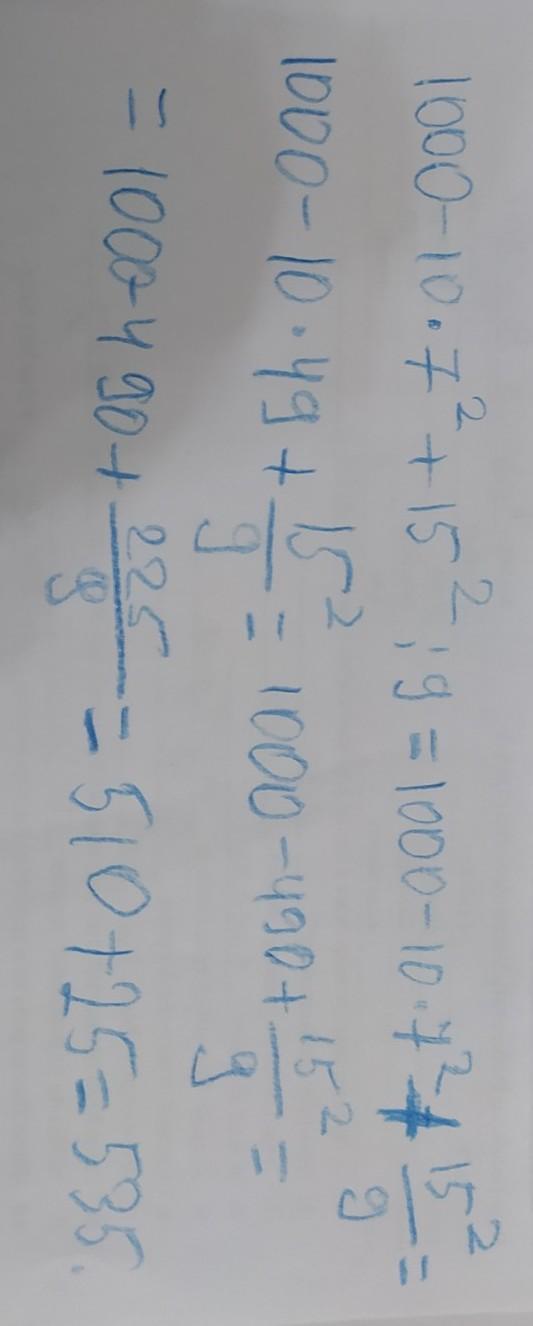 1000 - 10 · 7² + 15² : 9 = 1000 - 10 · 7² + \frac{15²}{9} =
1000 - 10 · 49 + \frac{15²}{9} = 1000 - 490 + \frac{15²}{9} =
= 1000 - 490 + \frac{225}{9} = 510 + 25 = 535.